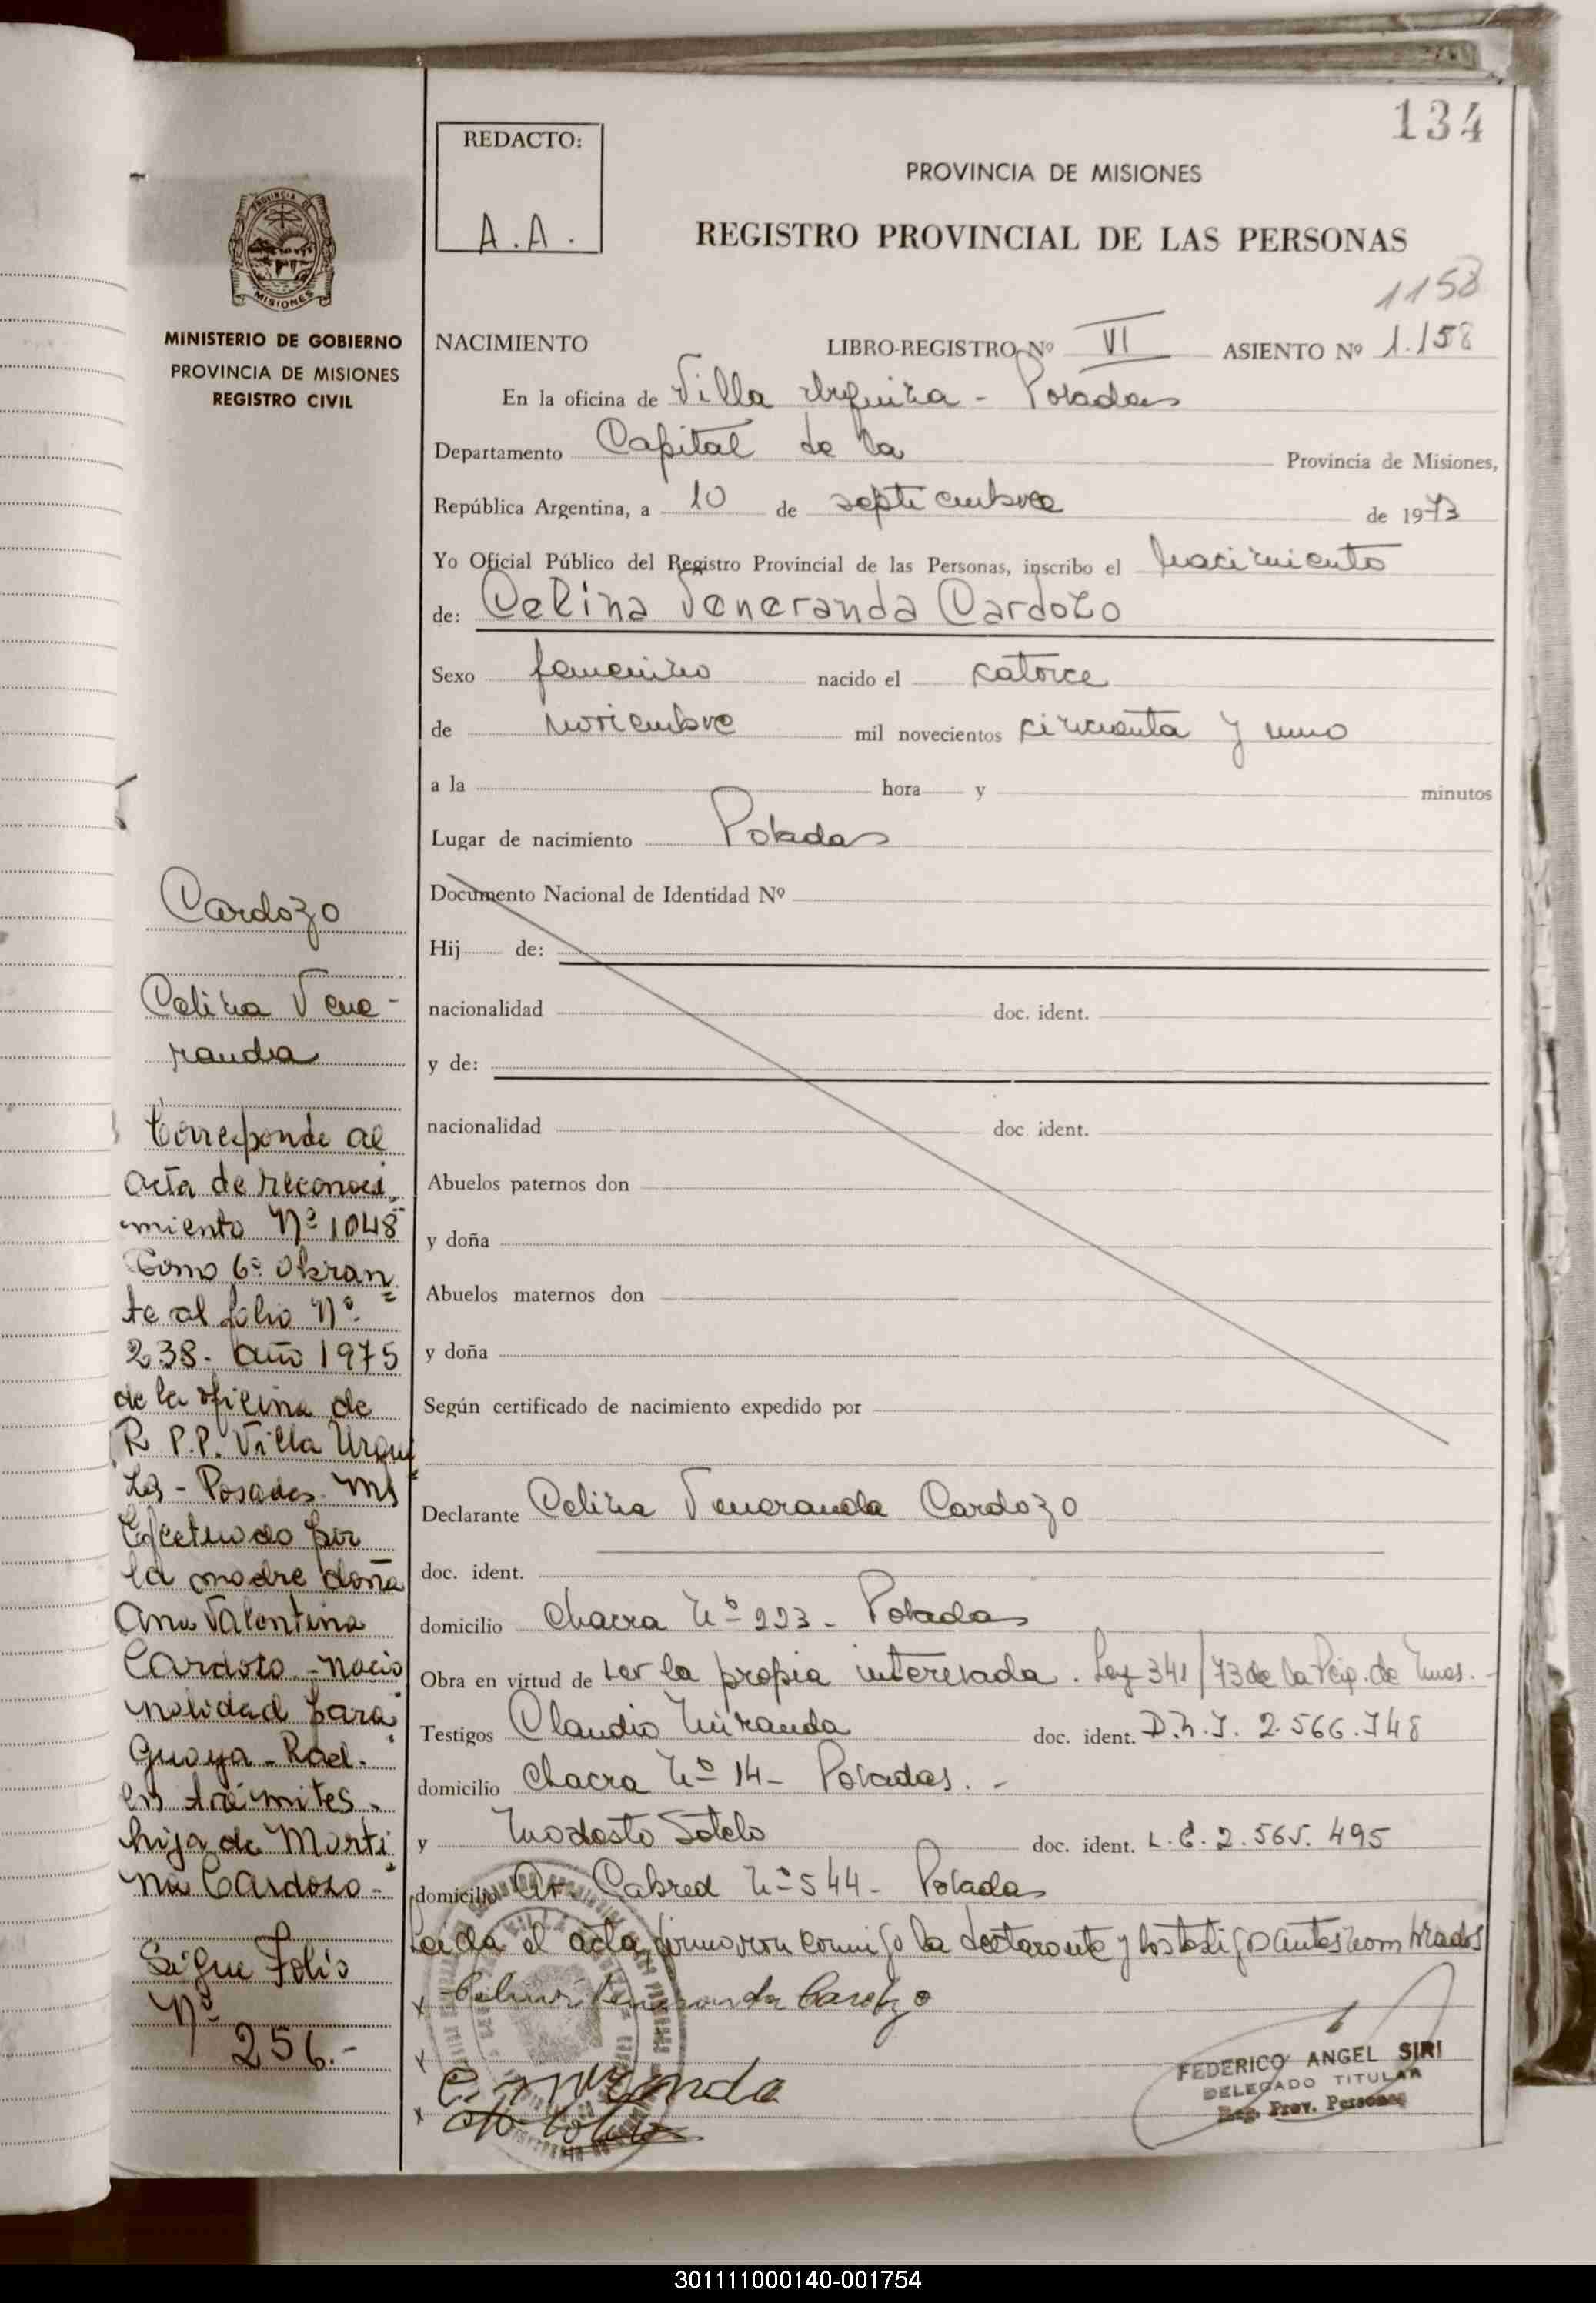 134
REDACTO:
A.A.
PROVINCIA DE MISIONES
REGISTRO PROVINCIAL DE LAS PERSONAS
MISIONES
MINISTERIO DE GOBIERNO
PROVINCIA DE MISIONES
REGISTRO CIVIL
1158
NACIMIENTO LIBRO-REGISTRO Nº VI ASIENTO Nº 1.158
En la oficina de Villa Urquiza - Posadas
Departamento Capital de la Provincia de Misiones,
República Argentina, a 10 de septiembre de 1973
Yo Oficial Público del Registro Provincial de las Personas, inscribo el nacimiento
de: Celina Veneranda Cardozo
Sexo femenino nacido el catorce
de noviembre mil novecientos cincuenta y uno
a la hora y minutos
Lugar de nacimiento Posadas
Documento Nacional de Identidad Nº
Hij de:
nacionalidad doc. ident.
y de:
nacionalidad doc. ident.
Abuelos paternos don
y doña
Abuelos maternos don
y doña
Según certificado de nacimiento expedido por
Declarante Celina Veneranda Cardozo
doc. ident.
domicilio Chacra Nº 223 - Posadas
Obra en virtud de ser la propia interesada. Ley 341/73 de la Pcia. de Mnes. -
Testigos Claudio Miranda doc. ident. D.N.I. 2.566.748
domicilio Chacra Nº 14 - Posadas. -
y Modesto Sotelo doc. ident. L.E. 2.565.495
domicilio Av. Cabred Nº 544 - Posadas
Leída el acta, firmaron conmigo la declarante y los testigos antes nombrados
x Celina Veneranda Cardozo
x
C. Miranda
x
FEDERICO ANGEL SIRI
DELEGADO TITULAR
Reg. Prov. Personas
Cardozo
Celina Vene-
randa
Corresponde al
acta de reconoci
miento Nº 1048
Tomo 6º Obran
te al folio Nº
238. año 1975
de la oficina de
R.P.P. Villa Urqui
za - Posadas. Ms
Efectuado por
la madre doña
Ana Valentina
Cardozo - Nacio
nalidad para
guaya - Rad.
en trámites.
hija de Marti
na Cardozo -
Sigue Folio
Nº
256.-
301111000140-001754